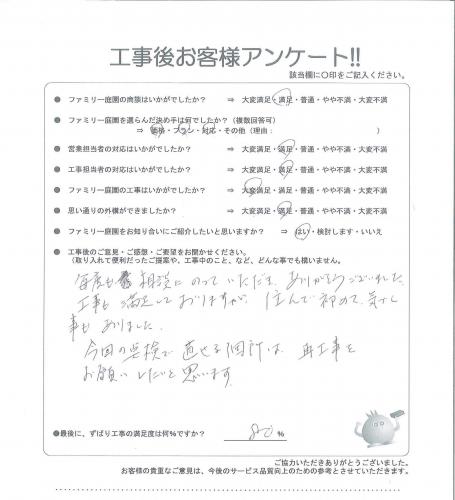 工事後お客様アンケート!!
該当欄に〇印をご記入ください。
● ファミリー庭園の商談はいかがでしたか? ⇒ 大変満足・満足・普通・やや不満・大変不満
● ファミリー庭園を選らんだ決め手は何でしたか?(複数回答可)
⇒ 価格・プラン・対応・その他(理由: )
● 営業担当者の対応はいかがでしたか? ⇒ 大変満足・満足・普通・やや不満・大変不満
● 工事担当者の対応はいかがでしたか? ⇒ 大変満足・満足・普通・やや不満・大変不満
● ファミリー庭園の工事はいかがでしたか? ⇒ 大変満足・満足・普通・やや不満・大変不満
● 思い通りの外構ができましたか? ⇒ 大変満足・満足・普通・やや不満・大変不満
● ファミリー庭園をお知り合いにご紹介したいと思いますか? ⇒ はい・検討します・いいえ
● 工事後のご意見・ご感想・ご要望をお聞かせください。
(取り入れて便利だったご提案や、工事中のこと、など、どんな事でも構いません。
毎度も 相談にのっていただき、ありがとうございました。
工事も満足しておりますが、住んで初めて気付く
事もありました。
今回の点検で直せる箇所は、再工事を
お願いしたいと思います
●最後に、ずばり工事の満足度は何%ですか? %
ご協力いただきありがとうございました。
お客様の貴重なご意見は、今後のサービス品質向上のための参考とさせていただきます。